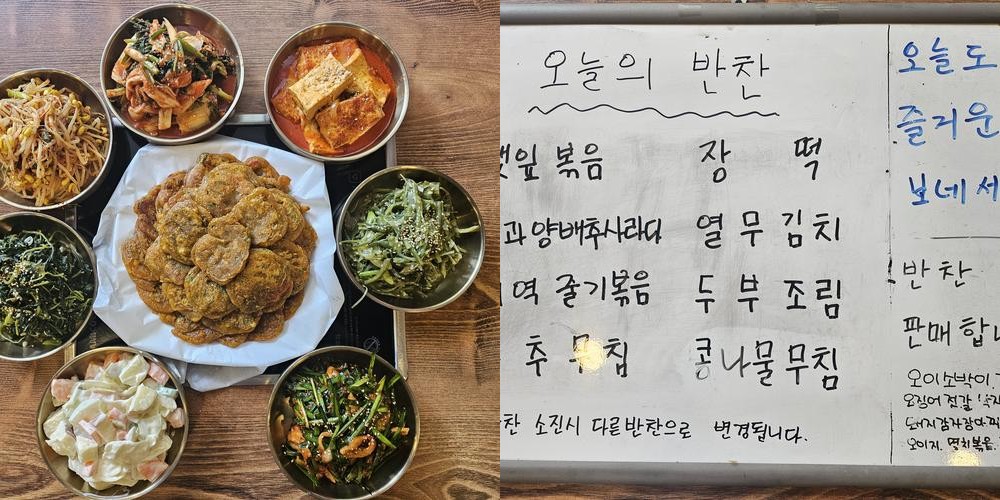 오늘의 반찬
볶음 장떡
양배추사라다 열무김치
줄기볶음 두부조림
콩나물무침
소진시 다른반찬으로 변경됩니다.
오늘도
즐거운
보네세
반찬
판매합니
오이소박이
오징어젓갈
돼지감자장아찌
오이지. 멸치볶음.